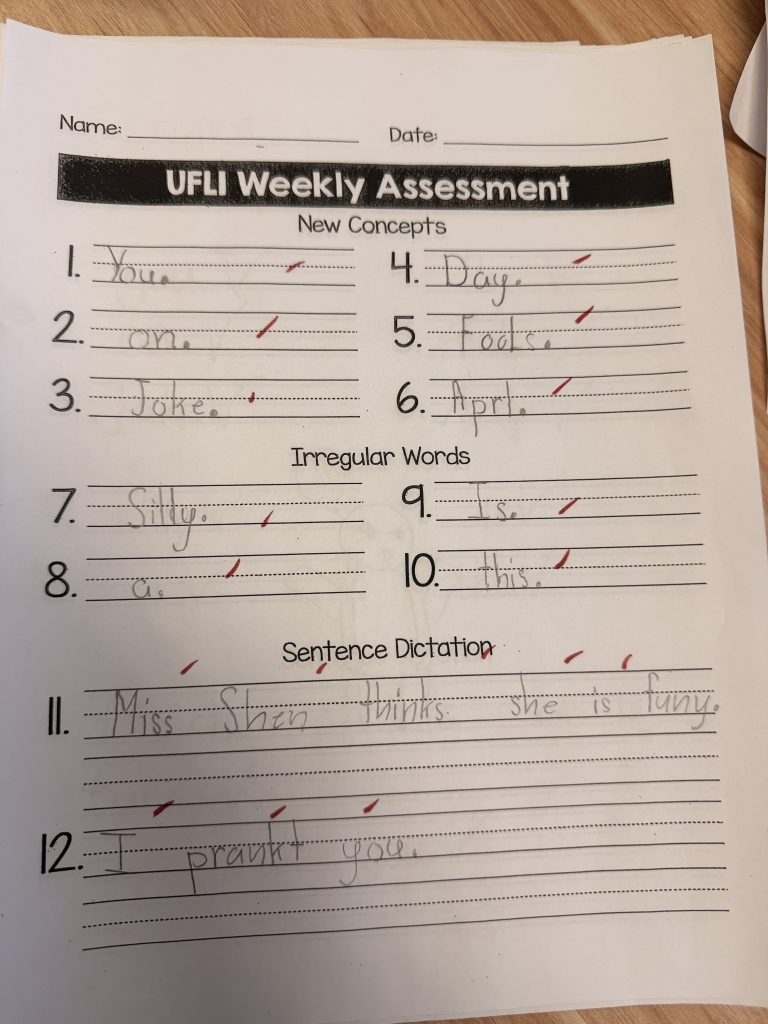 Name: Date:
UFLI Weekly Assessment
New Concepts
1. You. 4. Day.
2. on. 5. Fools.
3. Joke. 6. Aprl.
Irregular Words
7. Silly. 9. Is.
8. a. 10. this.
Sentence Dictation
11. Miss Shen thinks she is funy.
12. I prankt you.